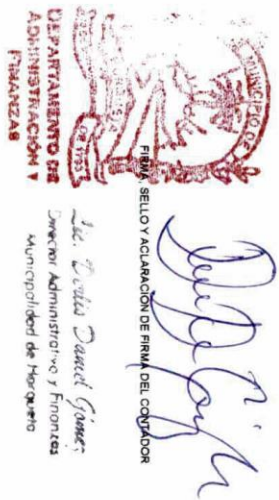 MUNICIPIO DE
DEPARTAMENTO DE
ADMINISTRACIÓN Y
FINANZAS
FIRMA, SELLO Y ACLARACIÓN DE FIRMA DEL CONTADOR
Lic. Derlis Daniel Gómez
Director Administrativo y Finanzas
Municipalidad de Horqueta